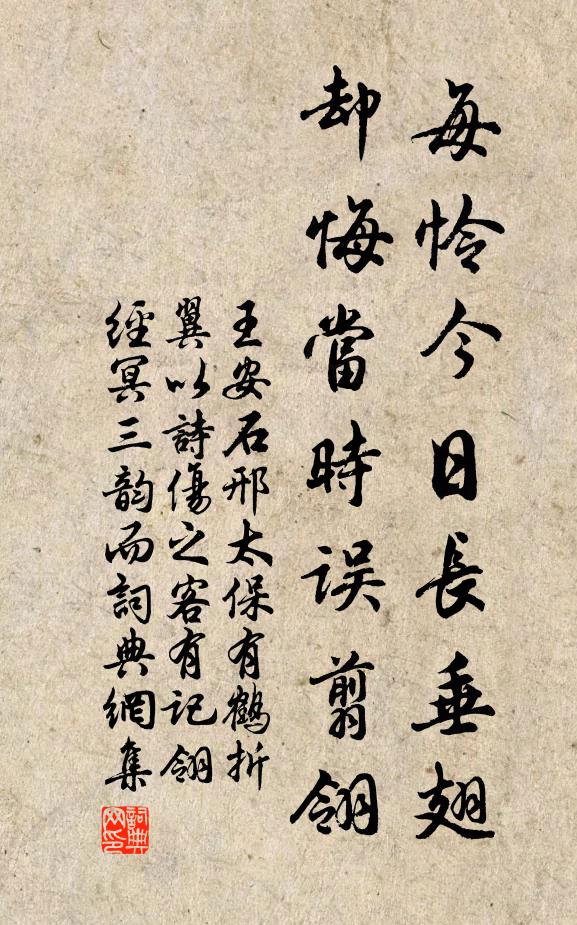 每怜今日長垂翅
却悔當時误翦翎
王安石邢太保有鶴折
翼以詩傷之客有記翎
經冥三韵而詞典網集
詞典